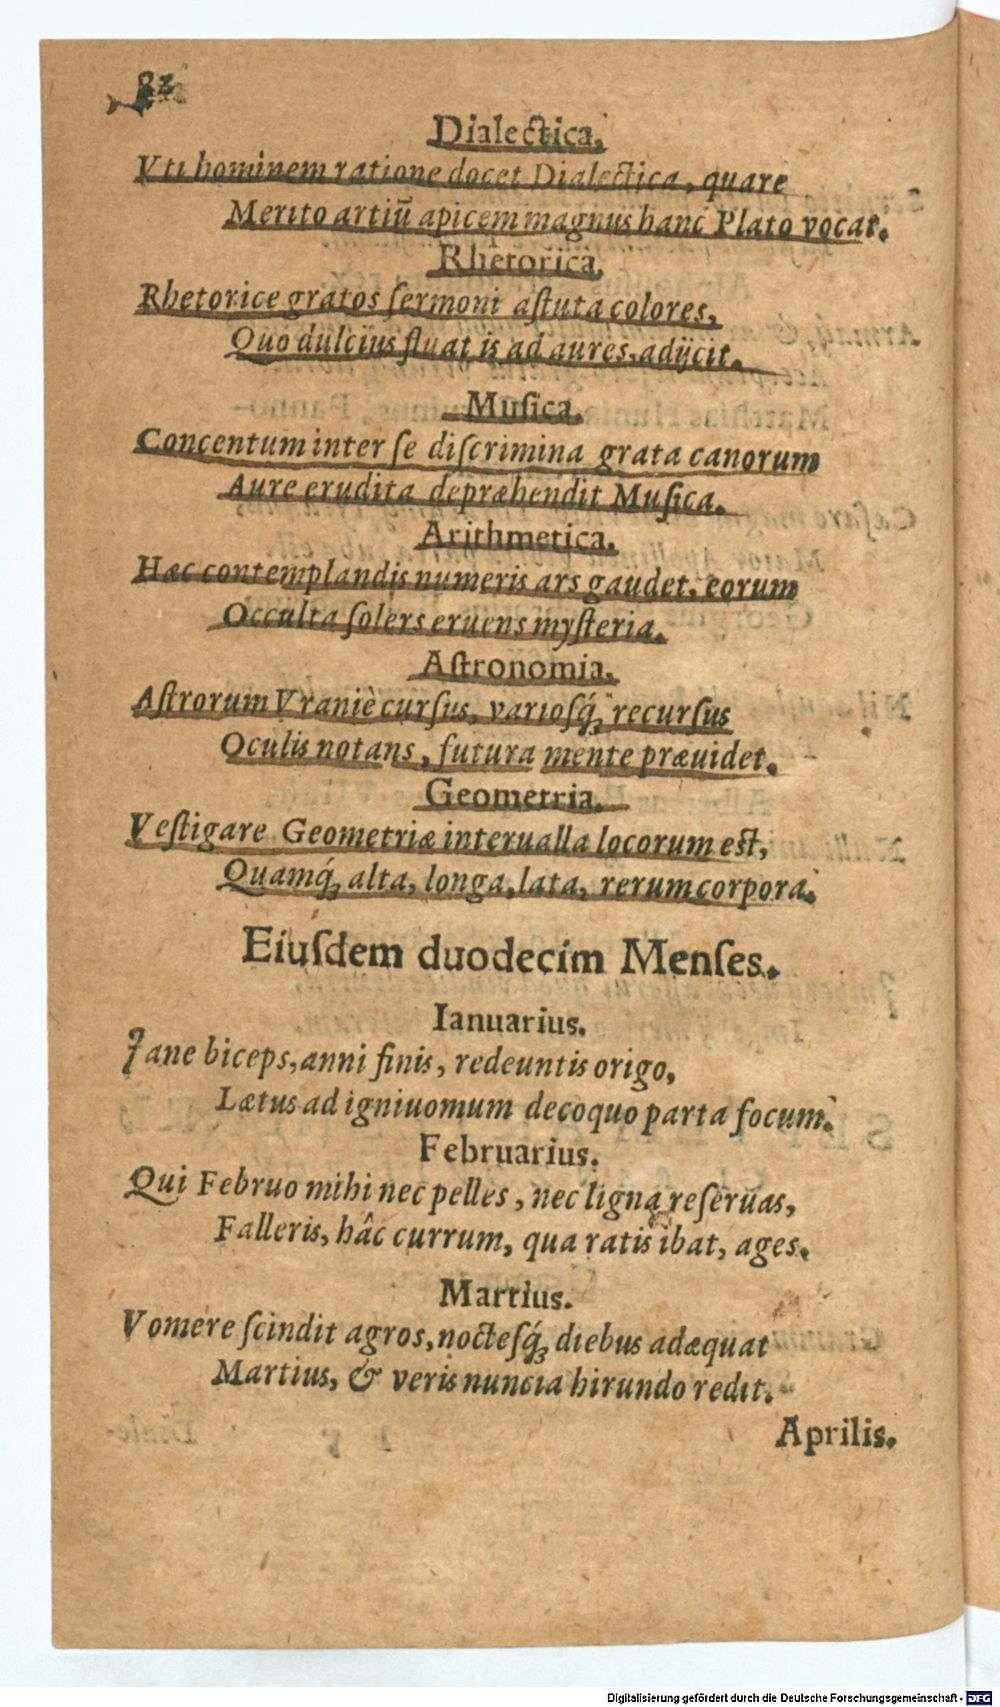 82
Dialectica.
Vti hominem ratione docet Dialectica, quare
Merito artiũ apicem magnus hanc Plato vocat.
Rhetorica.
Rhetorice gratos ſermoni aſtuta colores,
Quo dulcius fluat is ad aures, adijcit.
Muſica.
Concentum inter ſe diſcrimina grata canorum
Aure erudita depræhendit Muſica.
Arithmetica.
Hæc contemplandis numeris ars gaudet, eorum
Occulta ſolers eruens myſteria.
Aſtronomia.
Aſtrorum Vraniè curſus, varioſq́; recurſus
Oculis notans, futura mente præuidet.
Geometria.
Veſtigare Geometriæ interualla locorum eſt,
Quamq́; alta, longa, lata, rerum corpora.
Eiuſdem duodecim Menſes.
Ianuarius.
Jane biceps, anni finis, redeuntis origo,
Lætus ad igniuomum decoquo parta focum.
Februarius.
Qui Februo mihi nec pelles, nec ligna reſeruas,
Falleris, hâc currum, qua ratis ibat, ages.
Martius.
Vomere ſcindit agros, nocteſq́; diebus adæquat
Martius, & veris nuncia hirundo redit.
Aprilis.
Digitalisierung gefördert durch die Deutsche Forschungsgemeinschaft - DFG